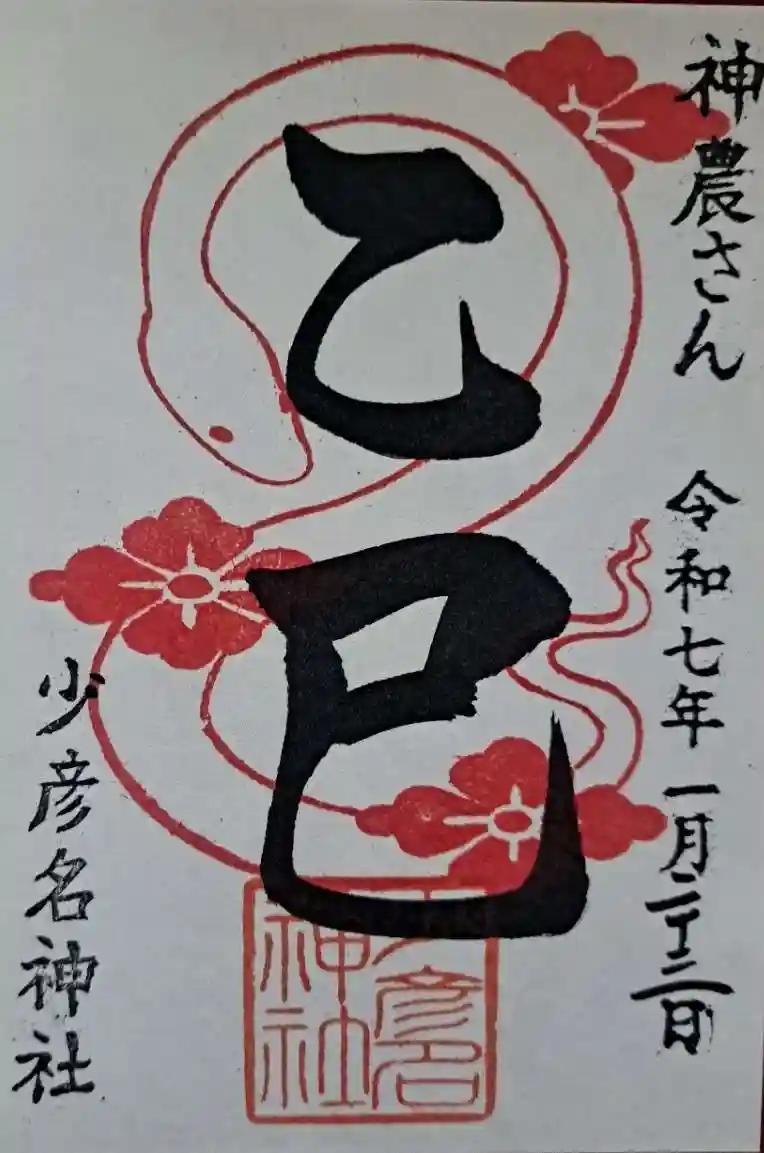 神農さん 令和七年一月二十二日
乙巳
少彦名神社
少彦名
神社